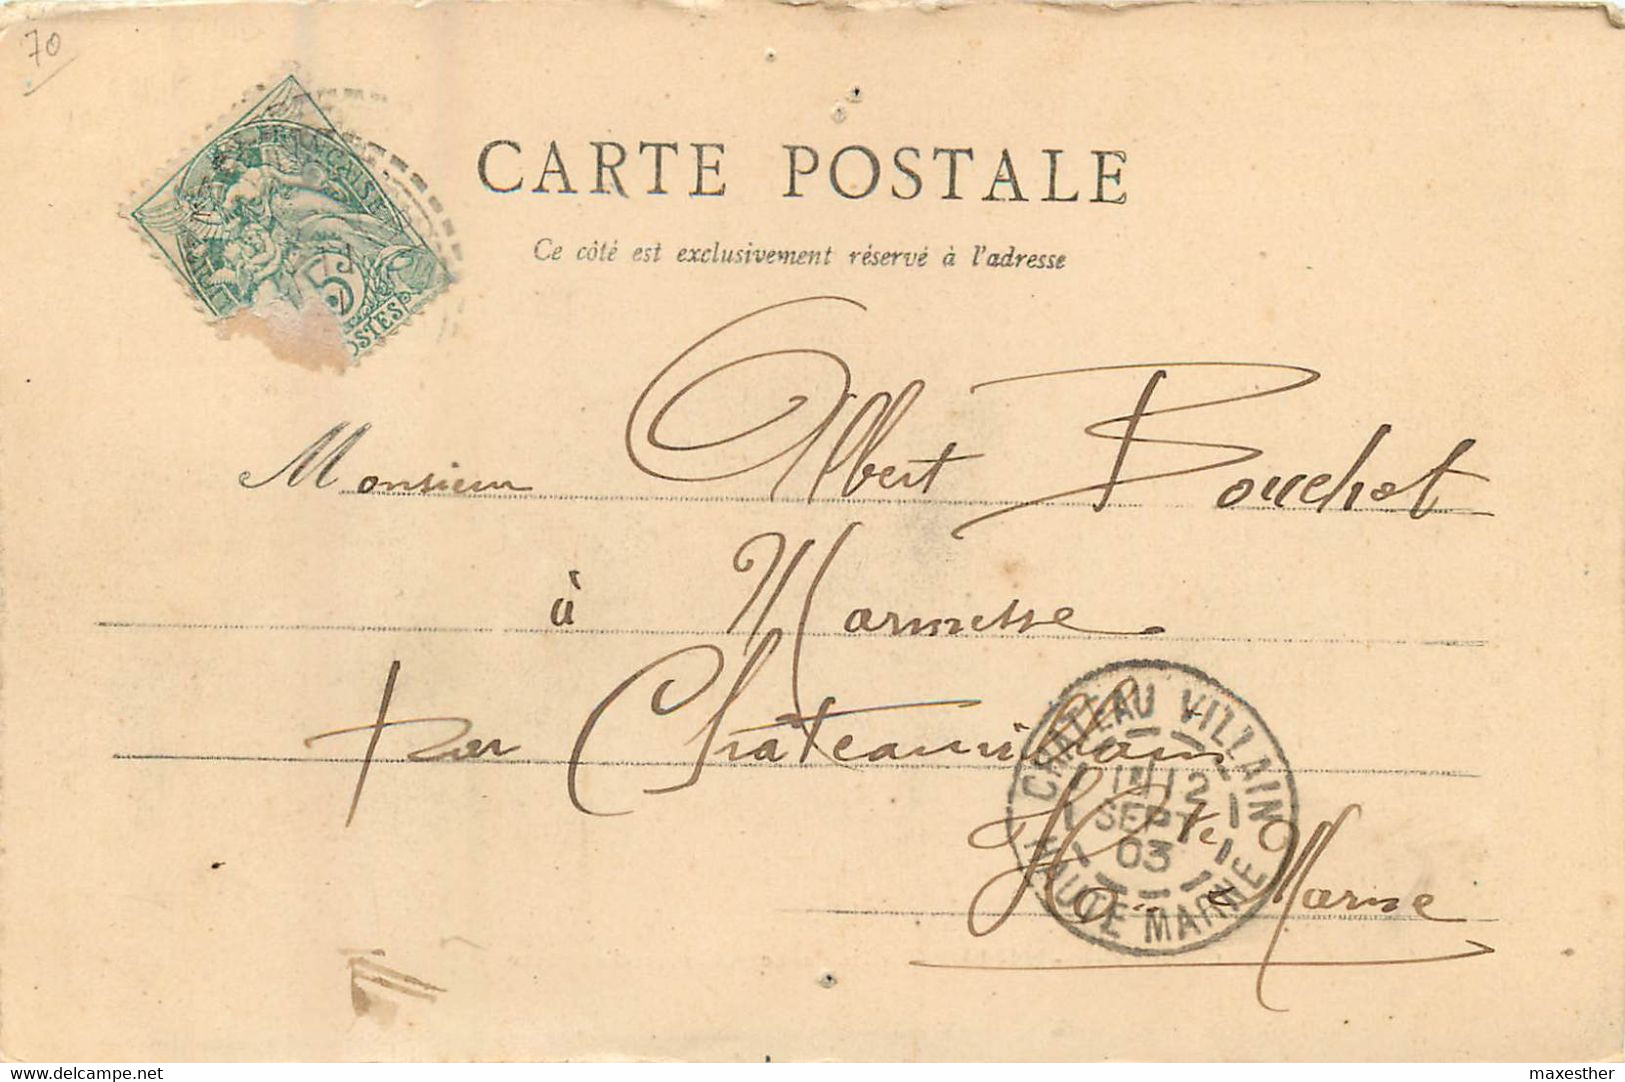 70
RÉPUBLIQUE FRANÇAISE
5c
POSTES
CARTE POSTALE
Ce côté est exclusivement réservé à l'adresse
Monsieur Albert Bouchot
à Marmesse
par Châteauvillain
Hte Marne
CHATEAU VILLAIN
12
SEPT
03
HAUTE MARNE
delcampe.net
maxesther